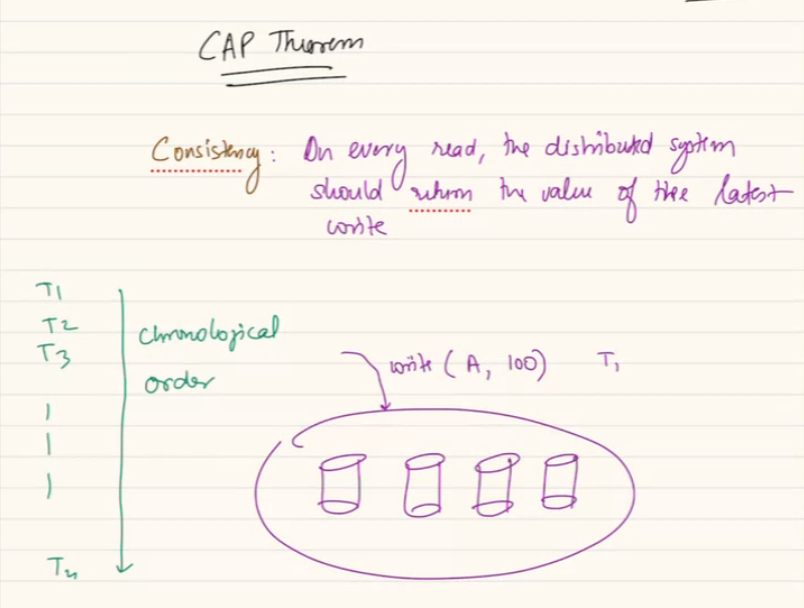 CAP Theorem
Consistency: On every read, the distributed system
should return the value of the latest
write
T1
T2
T3
chronological
order
write (A, 100) T1
Tn